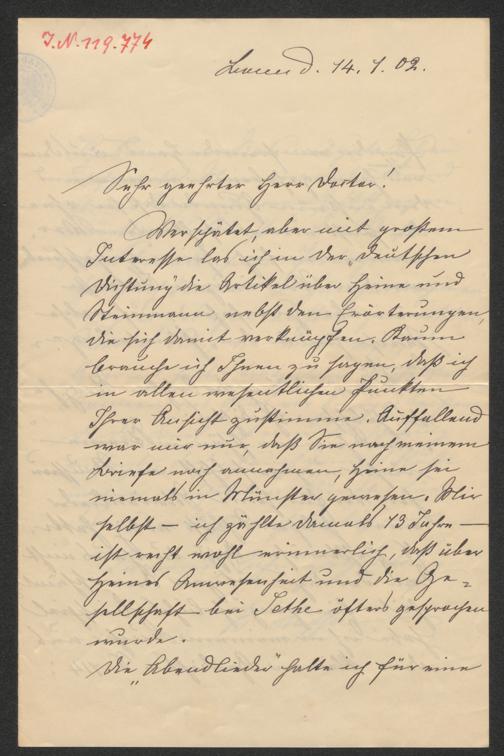 I.N. 119.774
Bonn d. 14. 1. 02.
Sehr geehrter Herr Doctor!
Verspätet, aber mit großem
Interesse las ich in der „Deutschen
Dichtung" die Artikel über Heine und
Steinmann nebst den Erörterungen,
die sich damit verknüpfen. Kaum
brauche ich Ihnen zu sagen, daß ich
in allen wesentlichen Punkten
Ihrer Ansicht zustimme. Auffallend
war mir nur, daß Sie nach meinem
Briefe noch annehmen, Heine sei
niemals in Münster gewesen. Mir
selbst — ich zählte damals 13 Jahre —
ist recht wohl erinnerlich, daß über
Heines Anwesenheit und die Ge=
sellschaft bei Sethe öfters gesprochen
wurde.
Die „Abendlieder" halte ich für eine